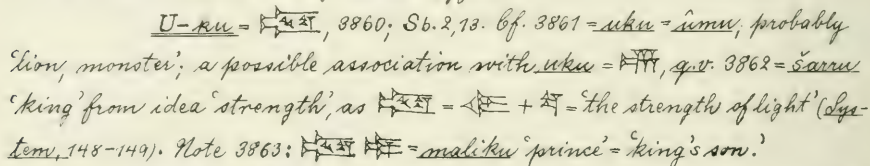 U-ku = , 3860; Sb. 2, 13. Cf. 3861 = uku = ûmu, probably
'lion, monster'; a possible association with uku = , q.v. 3862 = šarru
'king' from idea 'strength', as = + = 'the strength of light' (Sys-
tem, 148-149). Note 3863: = maliku 'prince' = 'king's son.'